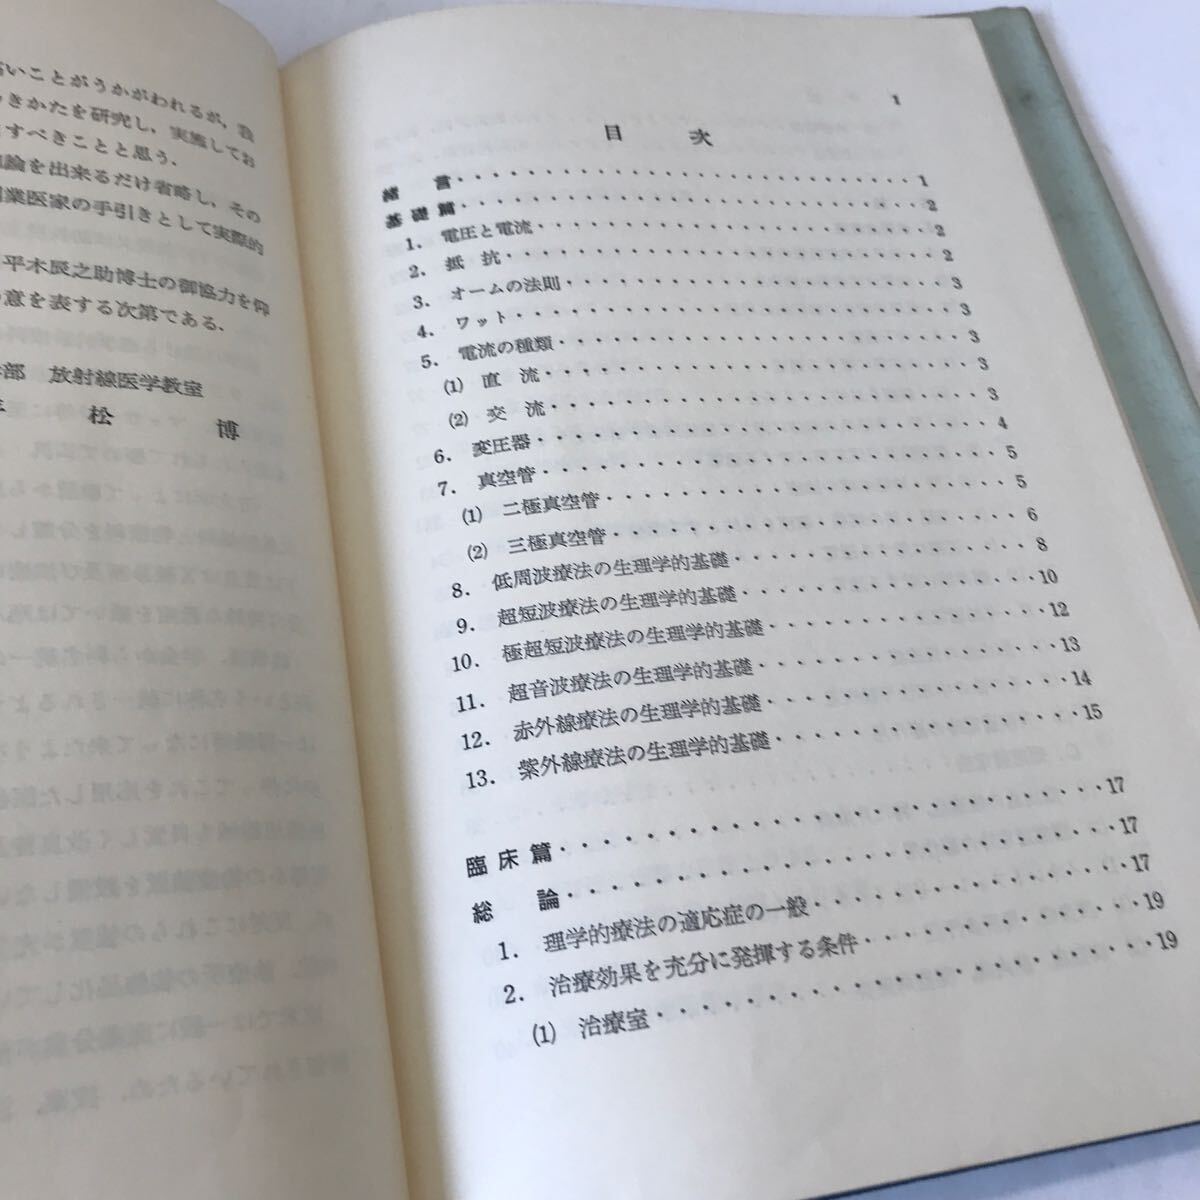 高いことがうかがわれるが，我
きかたを研究し，実施してお
すべきことと思う．
論を出来るだけ省略し，その
開業医家の手引きとして実際的
平木辰之助博士の御協力を仰
意を表する次第である．
部　放射線医学教室
松　博
1
目　次
緒　言・・・・・・・・・・・・・・・・・・・・・・・・・・・・・1
基礎篇・・・・・・・・・・・・・・・・・・・・・・・・・・・・・2
1．電圧と電流・・・・・・・・・・・・・・・・・・・・・・・・・2
2．抵　抗・・・・・・・・・・・・・・・・・・・・・・・・・・・2
3．オームの法則・・・・・・・・・・・・・・・・・・・・・・・・3
4．ワット・・・・・・・・・・・・・・・・・・・・・・・・・・・3
5．電流の種類・・・・・・・・・・・・・・・・・・・・・・・・・3
(1)　直　流・・・・・・・・・・・・・・・・・・・・・・・・・・3
(2)　交　流・・・・・・・・・・・・・・・・・・・・・・・・・・3
6．変圧器・・・・・・・・・・・・・・・・・・・・・・・・・・・4
7．真空管・・・・・・・・・・・・・・・・・・・・・・・・・・・5
(1)　二極真空管・・・・・・・・・・・・・・・・・・・・・・・・5
(2)　三極真空管・・・・・・・・・・・・・・・・・・・・・・・・6
8．低周波療法の生理学的基礎・・・・・・・・・・・・・・・・・・8
9．超短波療法の生理学的基礎・・・・・・・・・・・・・・・・・・10
10．極超短波療法の生理学的基礎・・・・・・・・・・・・・・・・・12
11．超音波療法の生理学的基礎・・・・・・・・・・・・・・・・・・13
12．赤外線療法の生理学的基礎・・・・・・・・・・・・・・・・・・14
13．紫外線療法の生理学的基礎・・・・・・・・・・・・・・・・・・15
臨床篇・・・・・・・・・・・・・・・・・・・・・・・・・・・・・17
総　論・・・・・・・・・・・・・・・・・・・・・・・・・・・・・17
1．理学的療法の適応症の一般・・・・・・・・・・・・・・・・・・17
2．治療効果を充分に発揮する条件・・・・・・・・・・・・・・・・19
(1)　治療室・・・・・・・・・・・・・・・・・・・・・・・・・・19